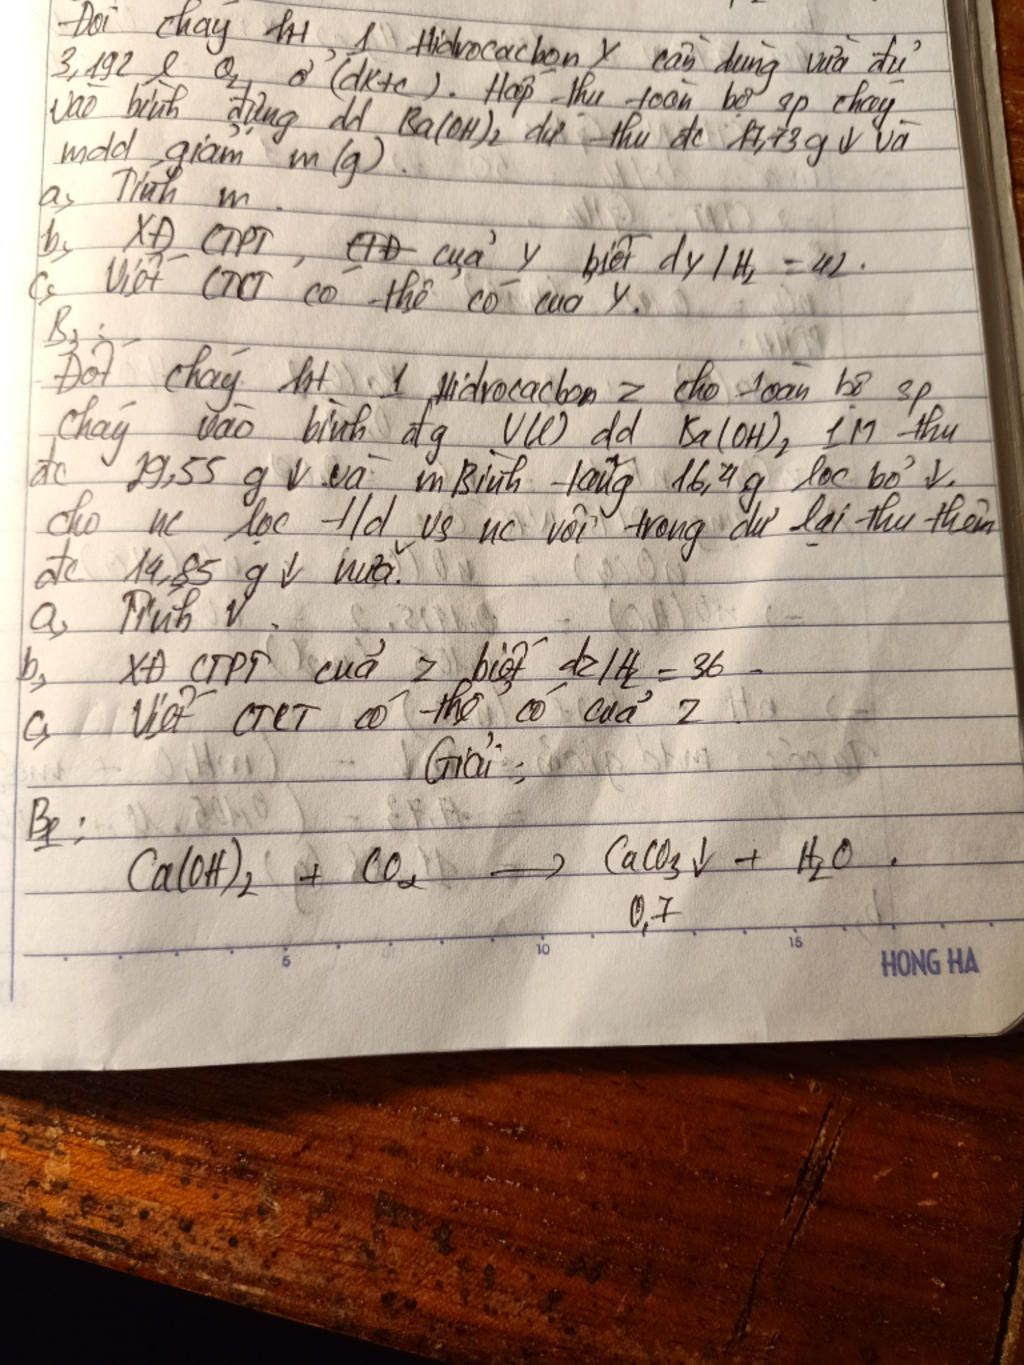 Đốt cháy ht 1 Hidrocacbon Y cần dùng vừa đủ
3,192 l O2 ở (đktc). Hấp thu toàn bộ sp cháy
vào bình đựng dd Ba(OH)2 dư thu đc 17,73 g ↓ và
mdd giảm m(g).
a, Tính m.
b, XĐ CTPT, CTĐ của Y biết dY/H2 = 42.
c, Viết CTCT có thể có của Y.
B3:
Đốt cháy ht 1 Hidrocacbon Z cho toàn bộ sp
cháy vào bình đg V(l) dd Ba(OH)2 1M thu
đc 29,55 g ↓ và mBình tăng 16,4 g lọc bỏ ↓.
cho nc lọc t/d vs nc vôi trong dư lại thu thêm
đc 14,85 g ↓ nữa.
a, Tính V.
b, XĐ CTPT của Z biết dZ/H2 = 36
c, Viết CTCT có thể có của Z
Giải:
B1:
Ca(OH)2 + CO2 → CaCO3↓ + H2O.
0,7
5 10 15
HONG HA